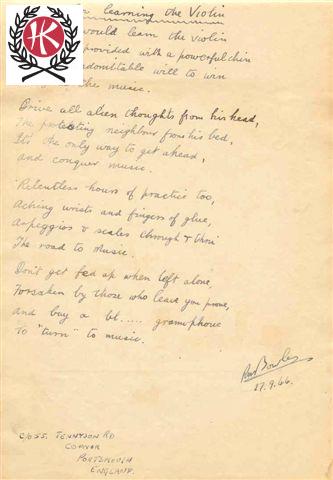 HK
learning the Violin
would learn the violin
provided with a powerful chin
indomitable will to win
the music.
Drive all alien thoughts from his head,
The protesting neighbour from his bed,
It's the only way to get ahead,
and conquer music.
Relentless hours of practice too,
Aching wrists and fingers of glue,
Arpeggios & scales through & thro'
The road to Music.
Don't get fed up when left alone,
Forsaken by those who leave you prone,
and buy a bl..... gramophone
To "turn" to music.
Bowles
27.9.66.
55. TENNYSON RD
COPNOR
PORTSMOUTH
ENGLAND.